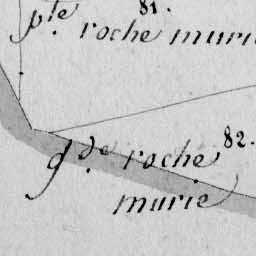 81.
p.te roche murie
82.
g.de roche
murie